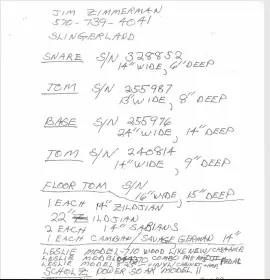 JIM ZIMMERMAN
570-739-4041
SLINGERLAND
SNARE S/N 328852
14" WIDE, 6" DEEP
TOM S/N 255987
13" WIDE, 8" DEEP
BASE S/N 255976
24" WIDE, 14" DEEP
TOM S/N 240814
14" WIDE, 9" DEEP
FLOOR TOM S/N
16" WIDE, 15" DEEP
1 EACH 14" ZILDJIAN
22" ZILDJIAN
2 EACH 14" SABIANS
1 EACH CAMBIAN/SAVAGE GERMAN 14"
LESLIE MODEL 710 WOOD LIKE NEW/
LESLIE MODEL COMBO PREAMP PEDAL
LESLIE MODEL VINYL/
SCHOLZ POWER SOAK MODEL II